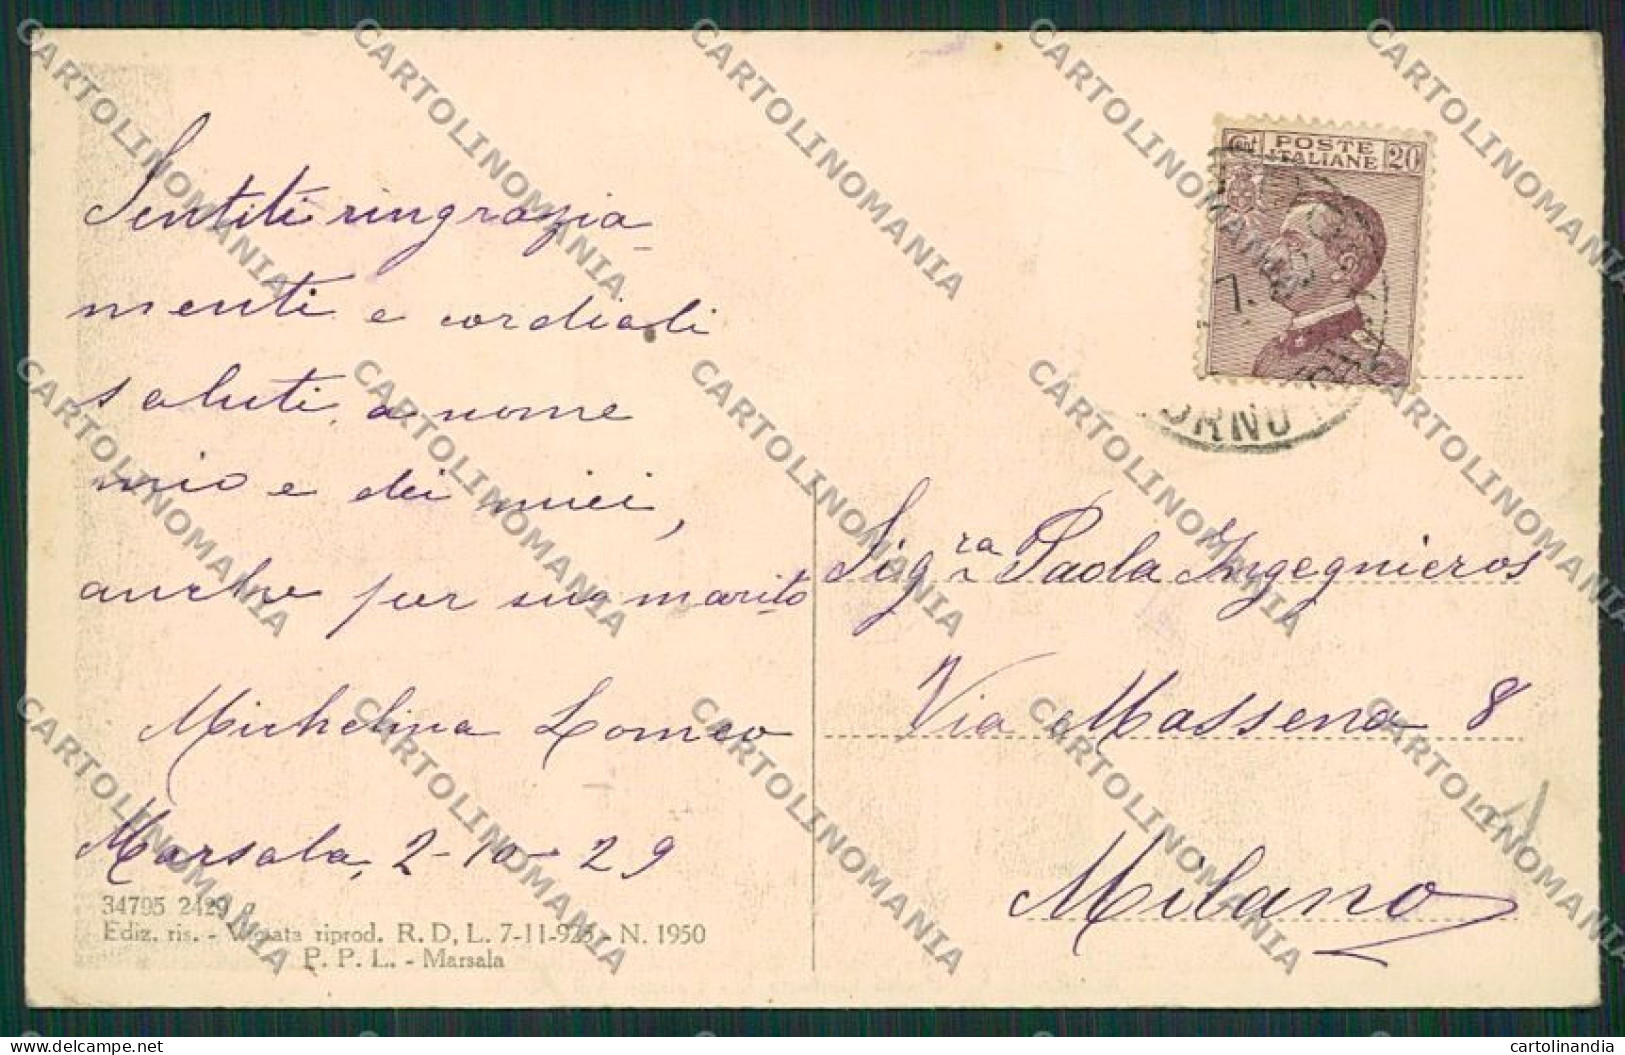 Sentiti ringrazia-
menti e cordiali
saluti a nome
mio e dei miei,
anche per suo marito
Michelina Lomeo
Marsala, 2-10-29
34795 2429
Ediz. ris. - Vietata riprod. R. D. L. 7-11-925 - N. 1950
P. P. L. - Marsala
Cent POSTE ITALIANE 20
Sig.ra Paola Ingegnieros
Via Massena 8
Milano
CARTOLINOMANIA
cartolinandia.delcampe.net